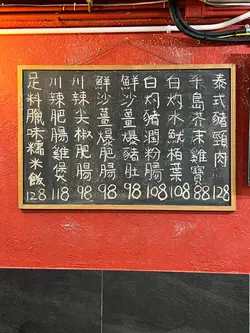 泰式豬頸肉 128
千島芥末雞寶 88
白灼水魷柏葉 108
白灼豬潤粉腸 108
鮮沙薑爆豬肚 98
鮮沙薑爆肥腸 98
川辣尖椒肥腸 98
川辣肥腸雞煲 118
足料臘味糯米飯 128